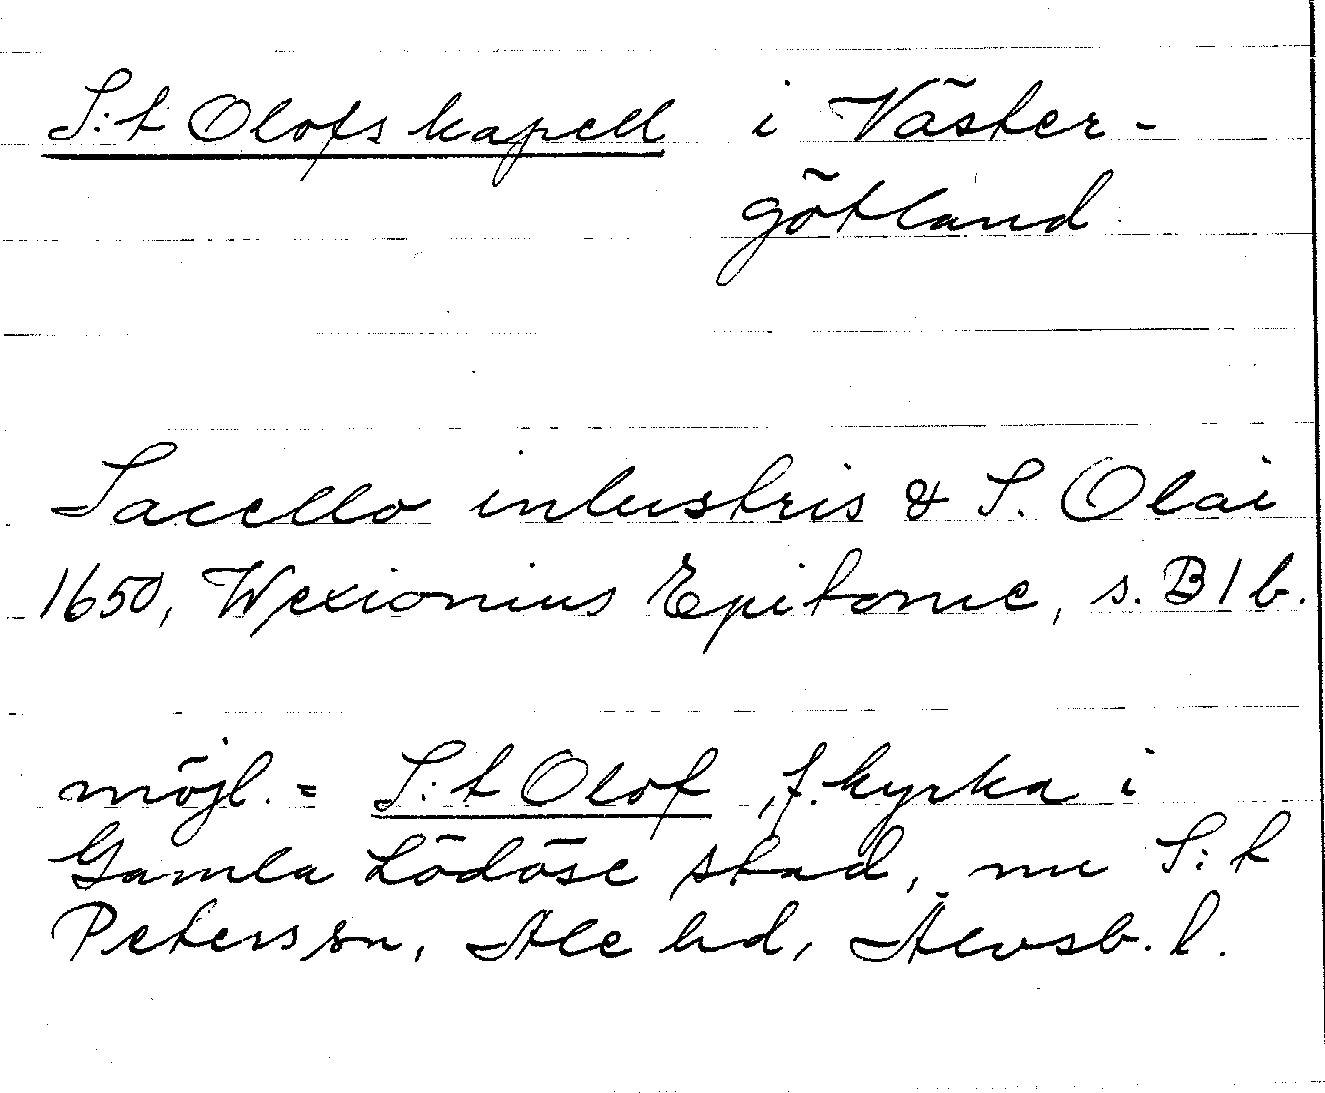 S:t Olofs kapell i Väster-
götland
Sacello inlustris & S. Olai
1650, Wexionius Epitome, s. B1b.
möjl. = S:t Olof, f. kyrka i
Gamla Lödöse stad, nu S:t
Peters sn, Ale hd, Älvsb. l.